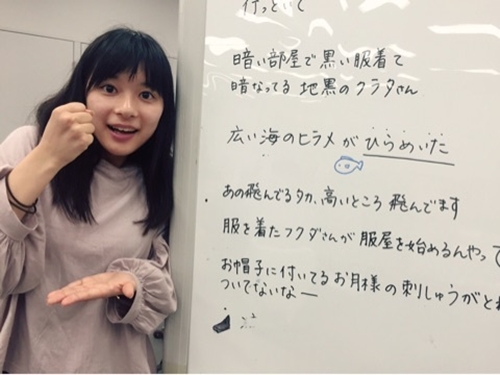 付っといて
暗い部屋で黒い服着て
暗なってる 地黒のクラタさん
広い海のヒラメが ひらめいた
・あの飛んでるタカ、高いところ飛んでます
服を着たフクダさんが 服屋を始めるんやって
お帽子に付いてるお月様の刺しゅうがとれ
ついてないなー